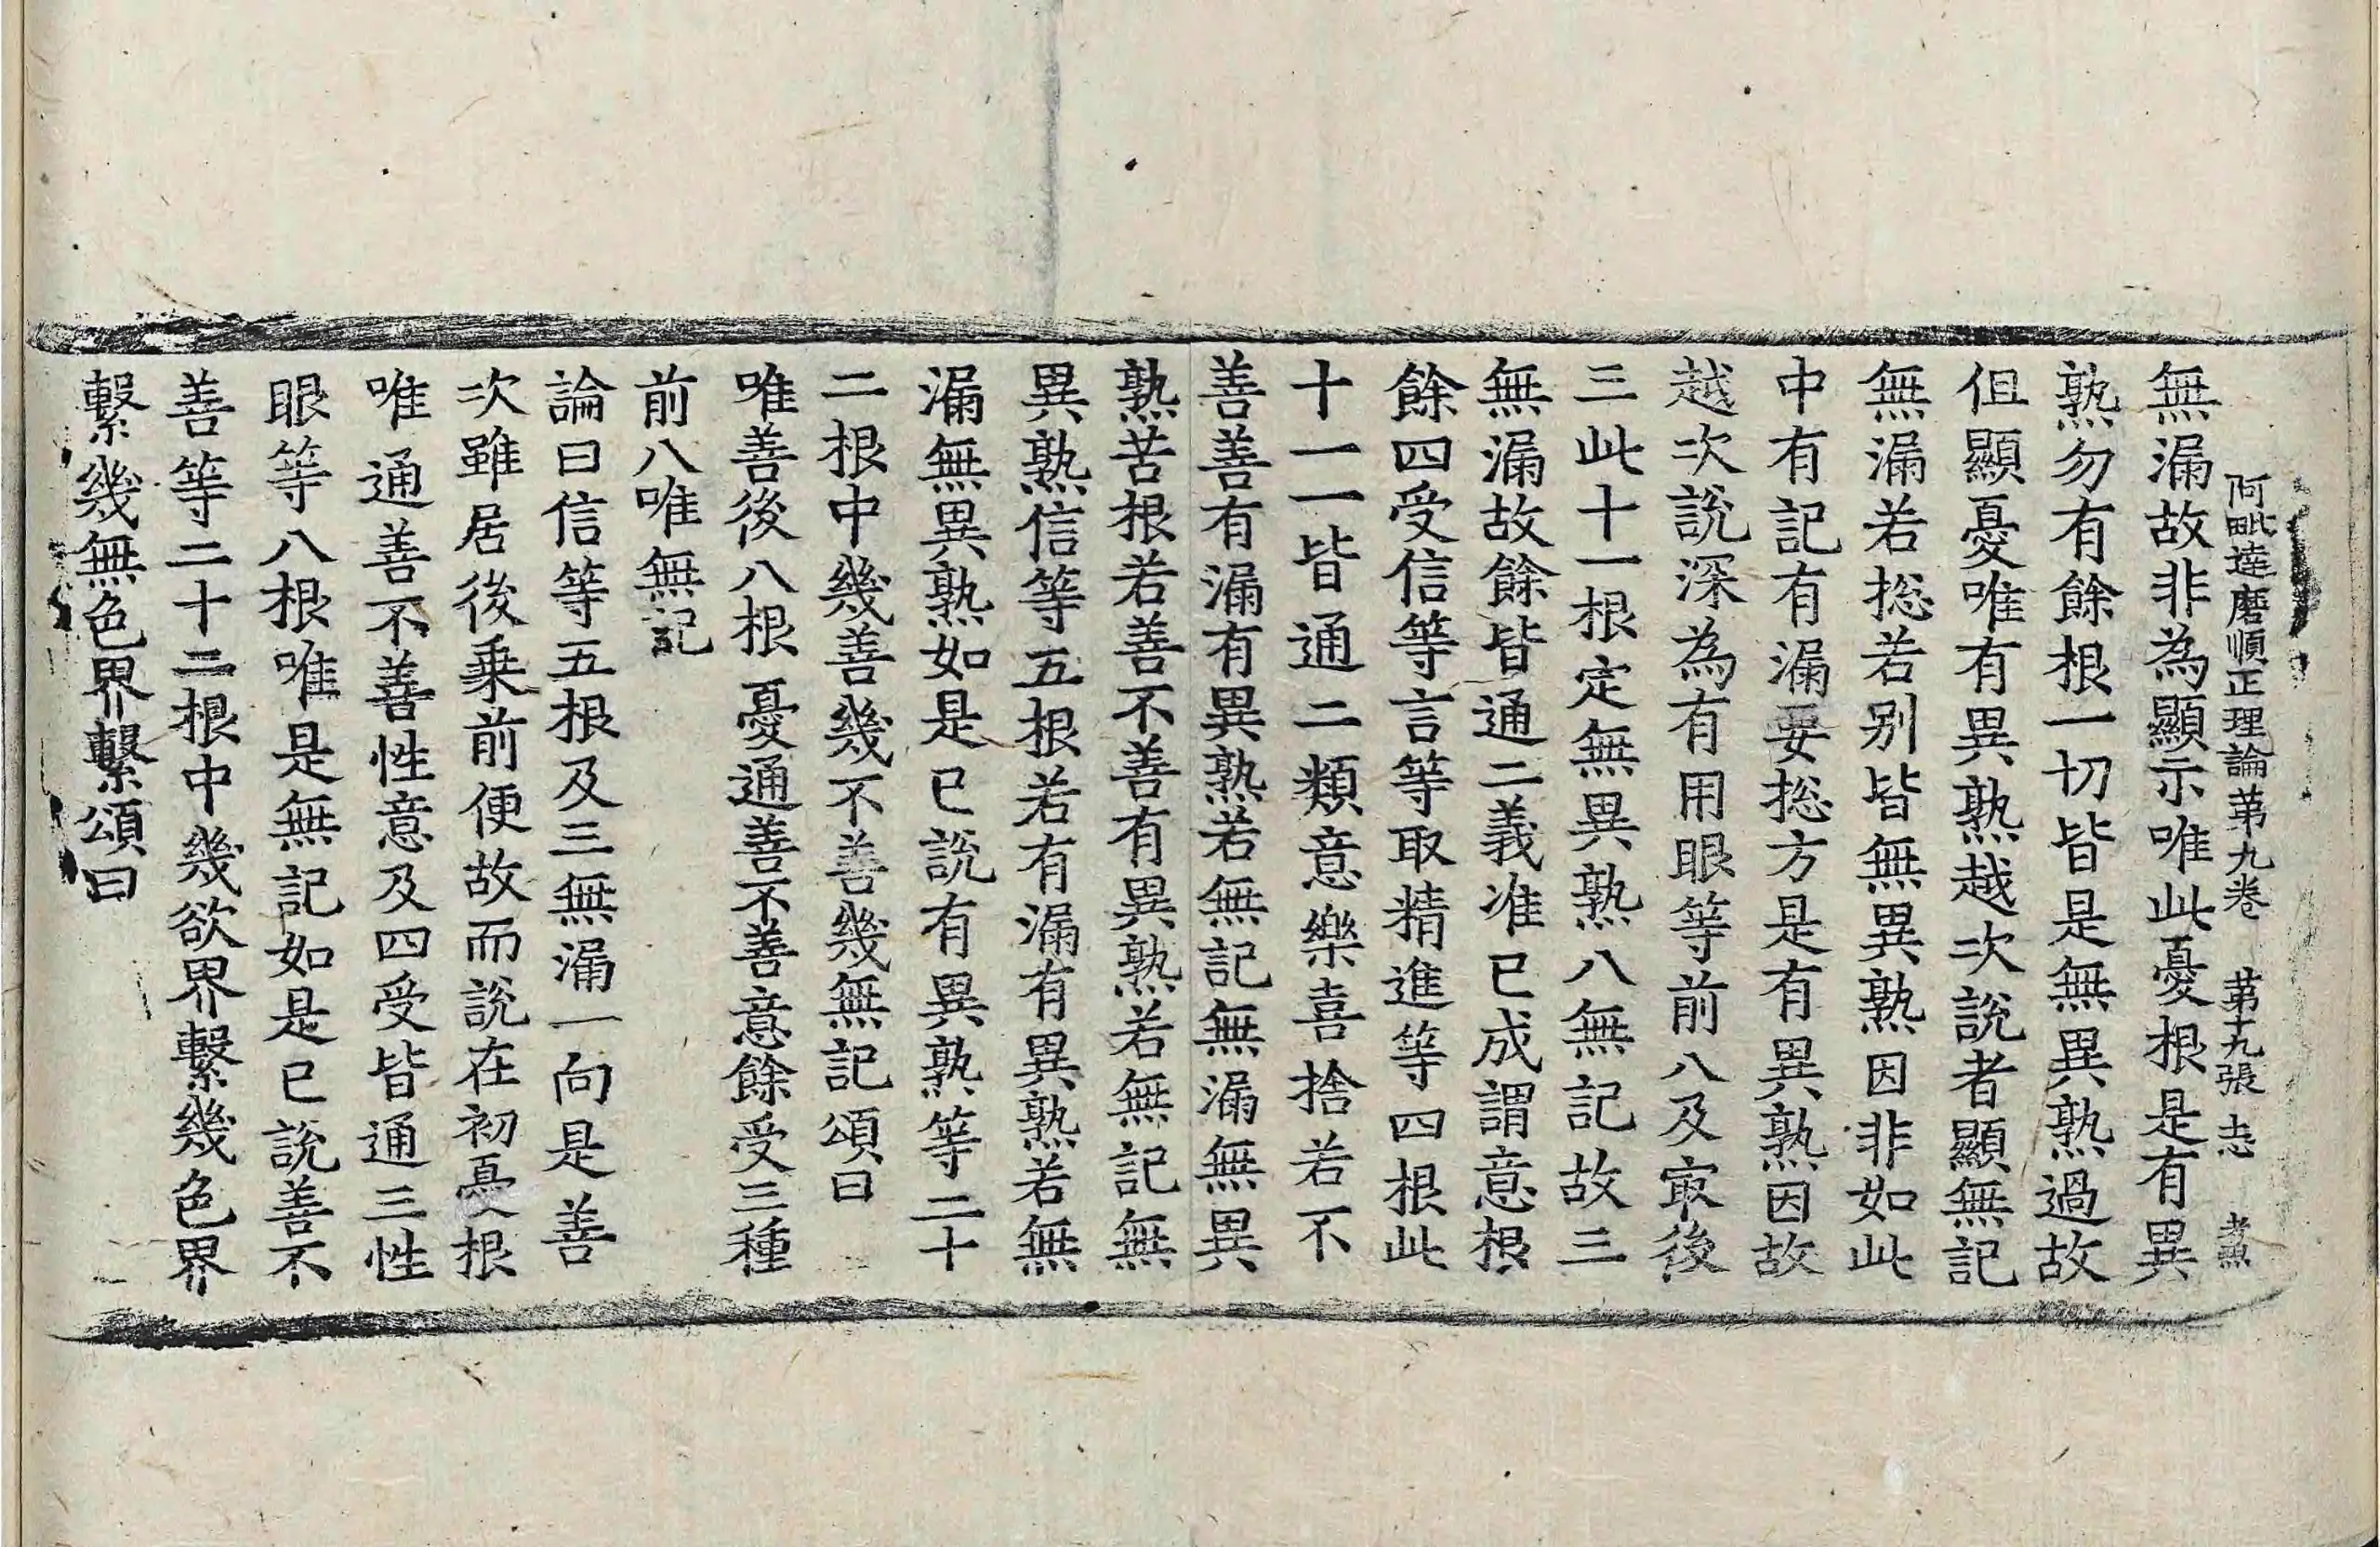 阿毗達磨順正理論第九卷　第十九張　志
無漏故非為顯示唯此憂根是有異
熟勿有餘根一切皆是無異熟過故
但顯憂唯有異熟越次說者顯無記
無漏若揔若別皆無異熟因非如此
中有記有漏要揔方是有異熟因故
越次說深為有用眼等前八及㝡後
三此十一根定無異熟八無記故三
無漏故餘皆通二義准已成謂意根
餘四受信等言等取精進等四根此
十一一皆通二類意樂喜捨若不
善善有漏有異熟若無記無漏無異
熟苦根若善不善有異熟若無記無
異熟信等五根若有漏有異熟若無
漏無異熟如是已說有異熟等二十
二根中幾善幾不善幾無記頌曰
唯善後八根　憂通善不善意餘受三種
前八唯無記
論曰信等五根及三無漏一向是善
次雖居後乗前便故而說在初憂根
唯通善不善性意及四受皆通三性
眼等八根唯是無記如是已說善不
善等二十二根中幾欲界繫幾色界
繫幾無色界繫頌曰